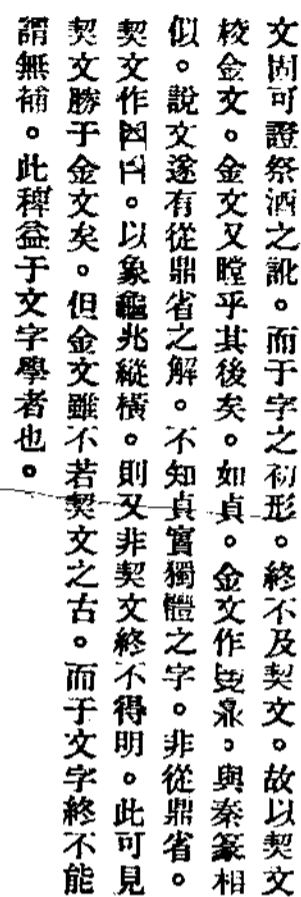 文固可證祭酒之訛。而于字之初形。終不及契文。故以契文
校金文。金文又瞠乎其後矣。如貞。金文作鼎。與秦篆相
似。說文遂有從鼎省之解。不知貞實獨體之字。非從鼎省。
契文作。以象龜兆縱橫。則又非契文終不得明。此可見
契文勝于金文矣。但金文雖不若契文之古。而于文字終不能
謂無補。此稗益于文字學者也。